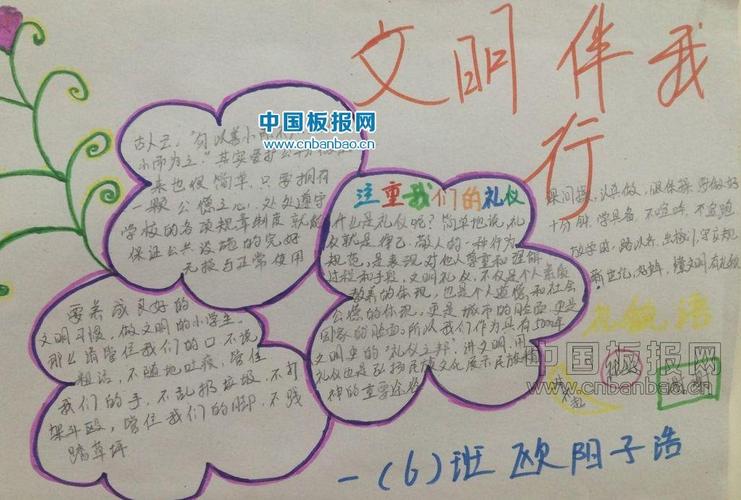 文明伴我
行
中国板报网
www.cnbanbao.cn
古人云:"勿以善小而不
小而为之."其实爱护公
来也很简单.只要拥有
一颗公德之心,处处遵守
学校的各项规章制度就能
保证公共设施的完好
无损与正常使用
注重我们的礼仪
什么是礼仪呢?简单地说,礼
仪就是律己、敬人的一种行为
规范,是表现对他人尊重和理解
过程和手段.文明礼仪,不仅是个人素质
教养的体现,也是个人道德和社会
公德的体现.更是城市的脸面更是
国家的脸面.所以我们作为具有5000年
文明史的"礼仪之邦",讲文明,用
礼仪也是弘扬民族文化展示民族精
神的重要途径
要养成良好的
文明习惯,做文明的小学生,
那么请管住我们的口不说
粗话,不随地吐痰,管住
我们的手,不乱扔垃圾,不打
架斗殴,管住我们的脚,不践
踏草坪
课间操,认真做,眼保操要做好
十分钟,守规
礼貌语
中国板报网
www.cnbanbao.cn
一(6)班 欧阳子浩